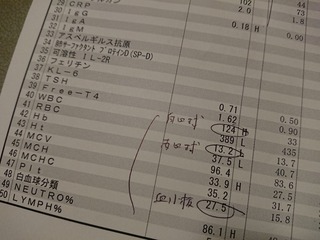 29 CRP 102 44
30 IgG 2.0 73
31 IgA 1.8
32 IgM 0.18 H 0.00
33 アスペルギルス抗原
34 肺サーファクタント プロテインD(SP-D)
35 可溶性 IL-2R
36 フェリチン
37 KL-6
38 TSH
39 Free-T4 0.71 0.50
40 WBC 白血球 1.62 0.90
41 RBC 124 H 33
42 Hb 赤血球 389 L 435
43 Ht 13.2 L 13.7
44 MCV 37.5 L 40.7
45 MCH 96.4 83.6
46 MCHC 33.9 H 27.5
47 Plt 35.2 31.7
48 白血球分類 血小板 27.5 15.8
49 NEUTRO%
50 LYMPH% 86.1 H